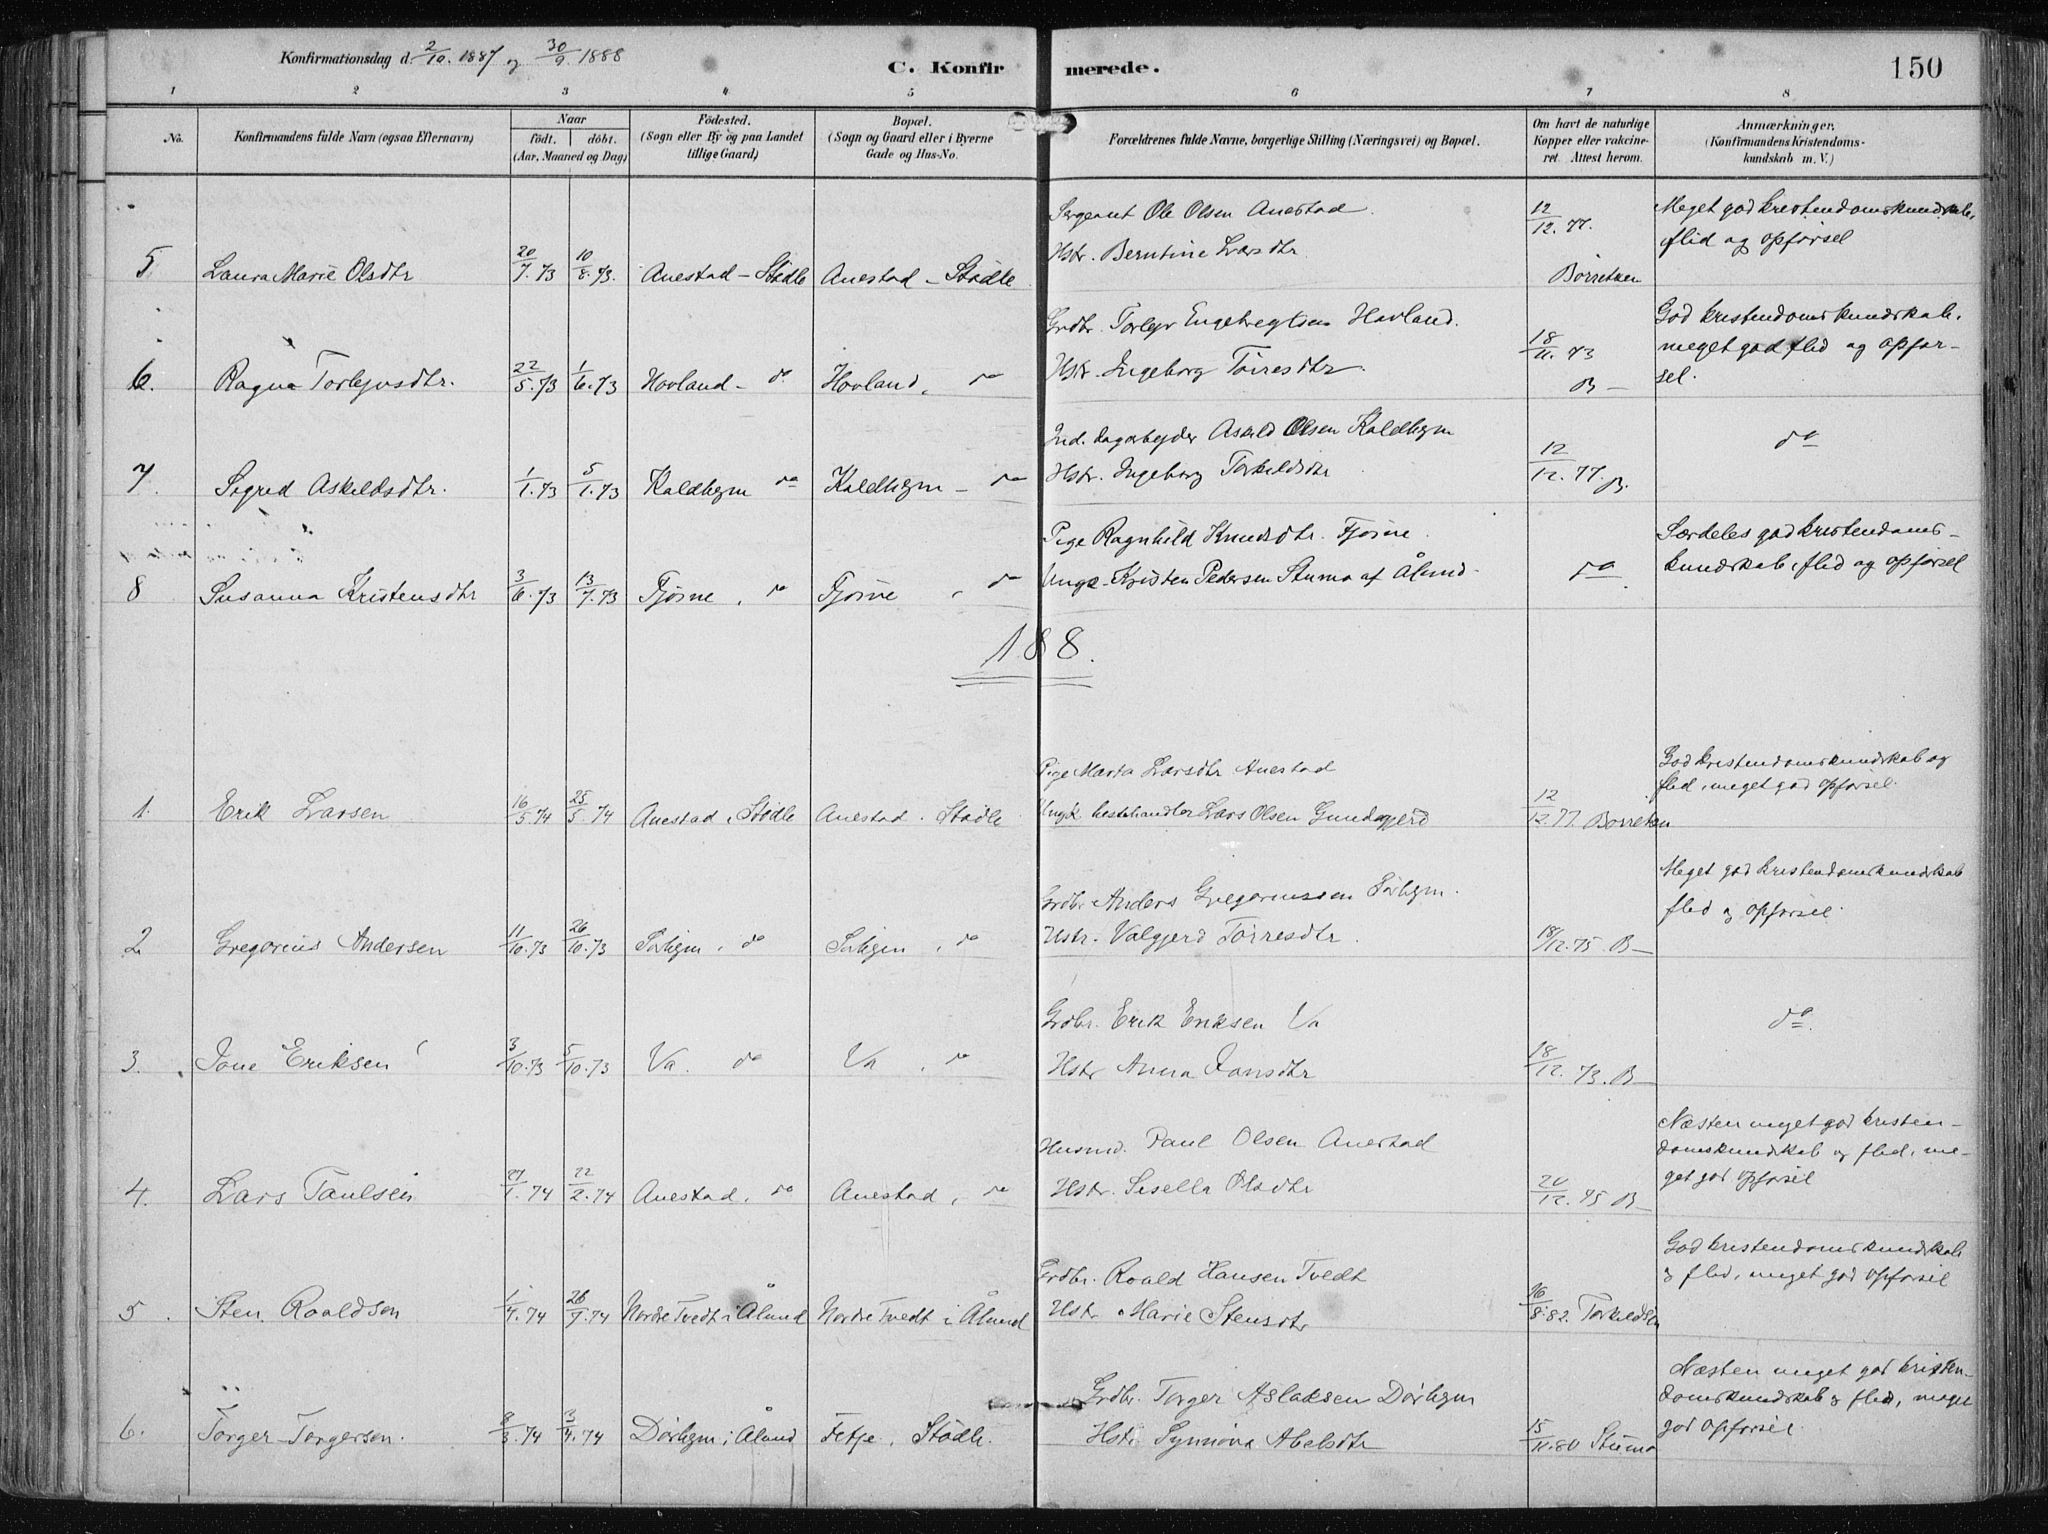 Konfirmationsdag d. 2/10. 1887 og 30/9 1888
C. Konfirmerede.
150
1 2 3 4 5 6 7 8
No.
Konfirmandens fulde Navn (ogsaa Efternavn)
Naar
födt. döbt.
(Aar, Maaned og Dag)
Födested.
(Sogn eller By og paa Landet
tillige Gaard)
Bopæl.
(Sogn og Gaard eller i Byerne
Gade og Hus-No.
Forældrenes fulde Navne, borgerlige Stilling (Næringsvei) og Bopæl.
Om havt de naturlige
Kopper eller vakcine-
ret. Attest herom.
Anmærkninger.
(Konfirmandens Kristendoms-
kundskab m. V.)
Sergeant Ole Olsen Anestad. 12/12. 77. Meget god kristendomskundskab,
Hstr. Berntine Larsdtr. flid og opførsel
5 Laura Marie Olsdtr 20/7. 73 10/8. 73. Anestad - Stødle Anestad - Stødle Børretzen
Grdbr. Torleiv Engebregtsen Hovland. God kristendomskundskab,
18/11. 73 meget god flid og opfør-
6. Ragna Torleivsdtr. 22/5. 73 1/6. 73 Hovland - do Hovland, do Hstr. Ingeborg Tørresdtr. B - sel.
Ind. dagarbejder Askild Olsen Kaldhejm do
7. Sigrid Askildsdtr. 1/1. 73 5/1. 73 Kaldhejm do Kaldhejm - do Hstr. Ingeborg Torkildsdtr 12/12. 77. B.
Pige Ragnhild Knudsdtr. Fjøsne. Særdeles god kristendoms-
8 Susanna Kristensdtr 3/6. 73 13/7. 73 Fjøsne, do Fjøsne, do Ungk. Kristen Pedersen Stumo af Ølund do kundskab, flid og opførsel
188.
Pige Marta Larsdtr Anestad God kristendomskundskab og
flid, meget god opførsel.
1. Erik Larsen 16/5. 74 25/5. 74 Anestad, Stødle Anestad. Stødle Ungk. hestehandler Lars Olsen Gundegjerd 12/12. 77. Børretzen
Grdbr. Anders Gregoriussen Sørhejm. Meget god kristendomskundskab
flid og opførsel.
2 Gregorius Andersen 11/10. 73 26/10. 73 Sørhejm, do Sørhejm, do Hstr. Valgjerd Tørresdtr. 18/12. 75. B-
Grdbr. Erik Eriksen Va do.
3. Jone Eriksen 3/10. 73 5/10. 73 Va. do Va, do Hstr Anna Jonsdtr 18/12. 73. B-
Husmd. Paul Olsen Anestad Næsten meget god kristen-
domskundskab og flid, me-
4. Lars Paulsen 27/1. 74 22/2. 74 Anestad, do Anestad, do Hstr. Sisella Olsdtr 20/12. 75 B- get god opførsel
Grdbr. Roald Hansen Tvedt God kristendomskundskab
og flid, meget god opførsel
5. Sten Roaldsen 1/7. 74 26/7. 74 Nordre Tvedt i Ølund Nordre Tvedt i Ølund Hstr Marie Stensdtr 16/8. 82. Torkildsen
Grdbr. Torger Aslaksen Dørhejm Næsten meget god kristen-
domskundskab og flid, meget
6. Torger Torgersen. 8/3. 74 3/4. 74 Dørhejm i Ølund Fetje, Stødle. Hstr. Synnöva Abelsdtr 15/11. 80 Stumo god opførsel.